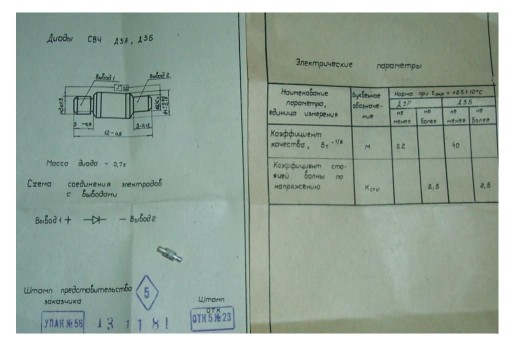 Диоды СВЧ Д3А, Д3Б
Вывод 1
Вывод 2
Масса диода - 0,7г
Схема соединения электродов
с выводами
Вывод 1 + — Вывод 2
Штамп представительства
заказчика
5
Штамп
ОТК
УПАК № 56
13 1 1 81
ОТК 5 № 23
Электрические параметры
Наименование
параметра,
единица измерения
Буквенное
обозначе-
ние
Норма при
Д3А
Д3Б
не
менее
не
более
не
менее
не
более
Коэффициент
качества, Вт -1/2
М
22
40
Коэффициент сто-
ячей волны по
напряжению
Кстu
2,5
2,5